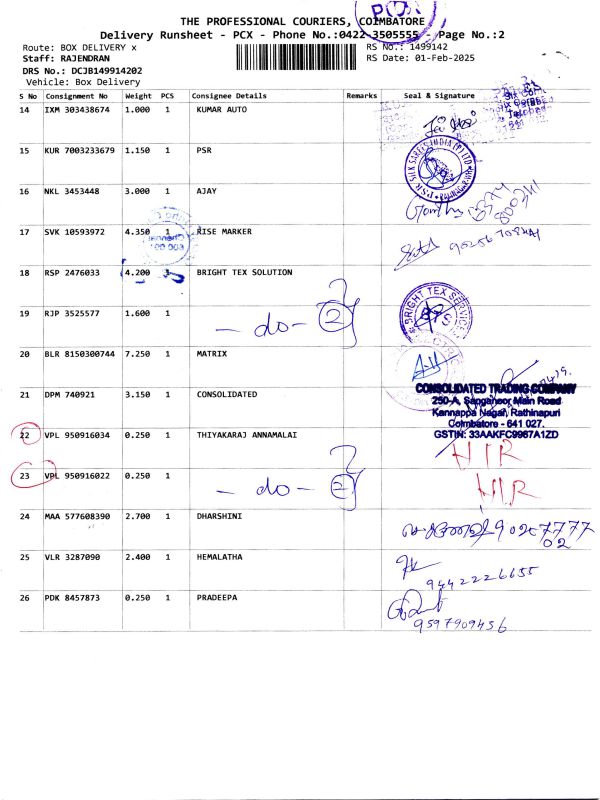 THE PROFESSIONAL COURIERS, COIMBATORE
Delivery Runsheet - PCX - Phone No.:0422-3505555 - Page No.:2
Route: BOX DELIVERY x
RS No.: 1499142
Staff: RAJENDRAN
RS Date: 01-Feb-2025
DRS No.: DCJB149914202
Vehicle: Box Delivery
S No Consignment No Weight PCS Consignee Details Remarks Seal & Signature
14 IXM 303438674 1.000 1 KUMAR AUTO
15 KUR 7003233679 1.150 1 PSR
PSR SILK SAREES INDIA (P) LTD
16 NKL 3453448 3.000 1 AJAY
17 SVK 10593972 4.350 1 RISE MARKER
18 RSP 2476033 4.200 1 BRIGHT TEX SOLUTION
BRIGHT TEX SERVICES
19 RJP 3525577 1.600 1
- do - 2
20 BLR 8150300744 7.250 1 MATRIX
21 DPM 740921 3.150 1 CONSOLIDATED
CONSOLIDATED TRADING COMPANY
250-A, Sanganoor Main Road
Kannappa Nagar, Rathinapuri
Coimbatore - 641 027.
GSTIN: 33AAKFC9967A1ZD
22 VPL 950916034 0.250 1 THIYAKARAJ ANNAMALAI
HIR
23 VPL 950916022 0.250 1
- do - 2
HIR
24 MAA 577608390 2.700 1 DHARSHINI
25 VLR 3287090 2.400 1 HEMALATHA
9442226655
26 PDK 8457873 0.250 1 PRADEEPA
9597909456